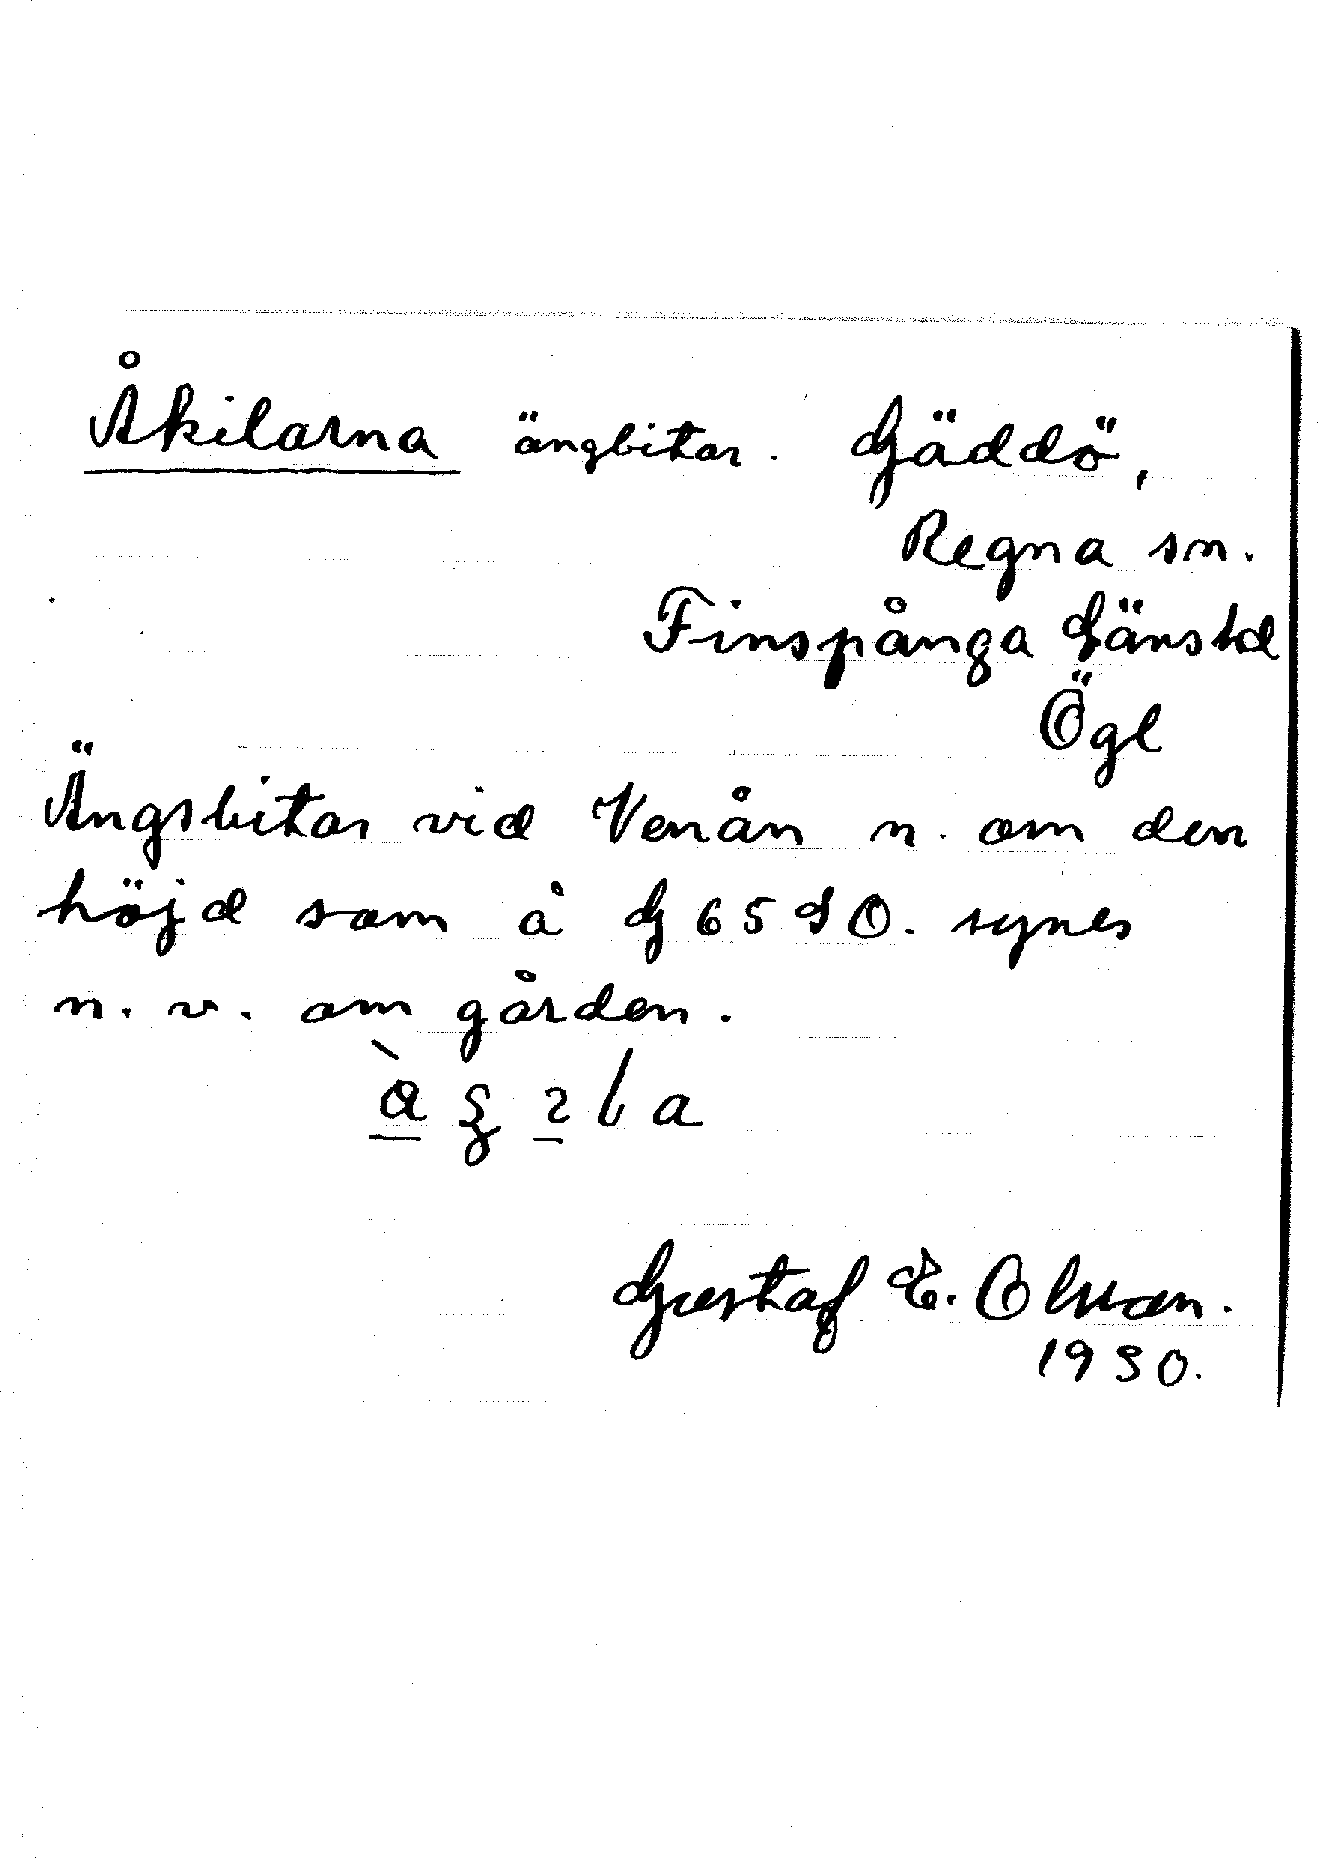 Åkilarna ängbitar. Gäddö,
Regna sn.
Finspånga Länshd
Ögl
Ängsbitar vid Venån n. om den
höjd som å G 65 SO. synes
n. v. om gården.
Gustaf E. Olsson.
1930.